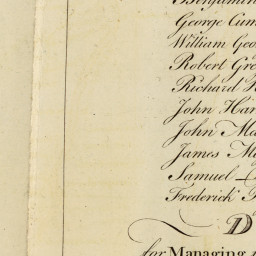 Benjamin
George Cum
William Geo
Robert Gr
Richard
John Har
John Ma
James Ma
Samuel
Frederick
D
for Managing